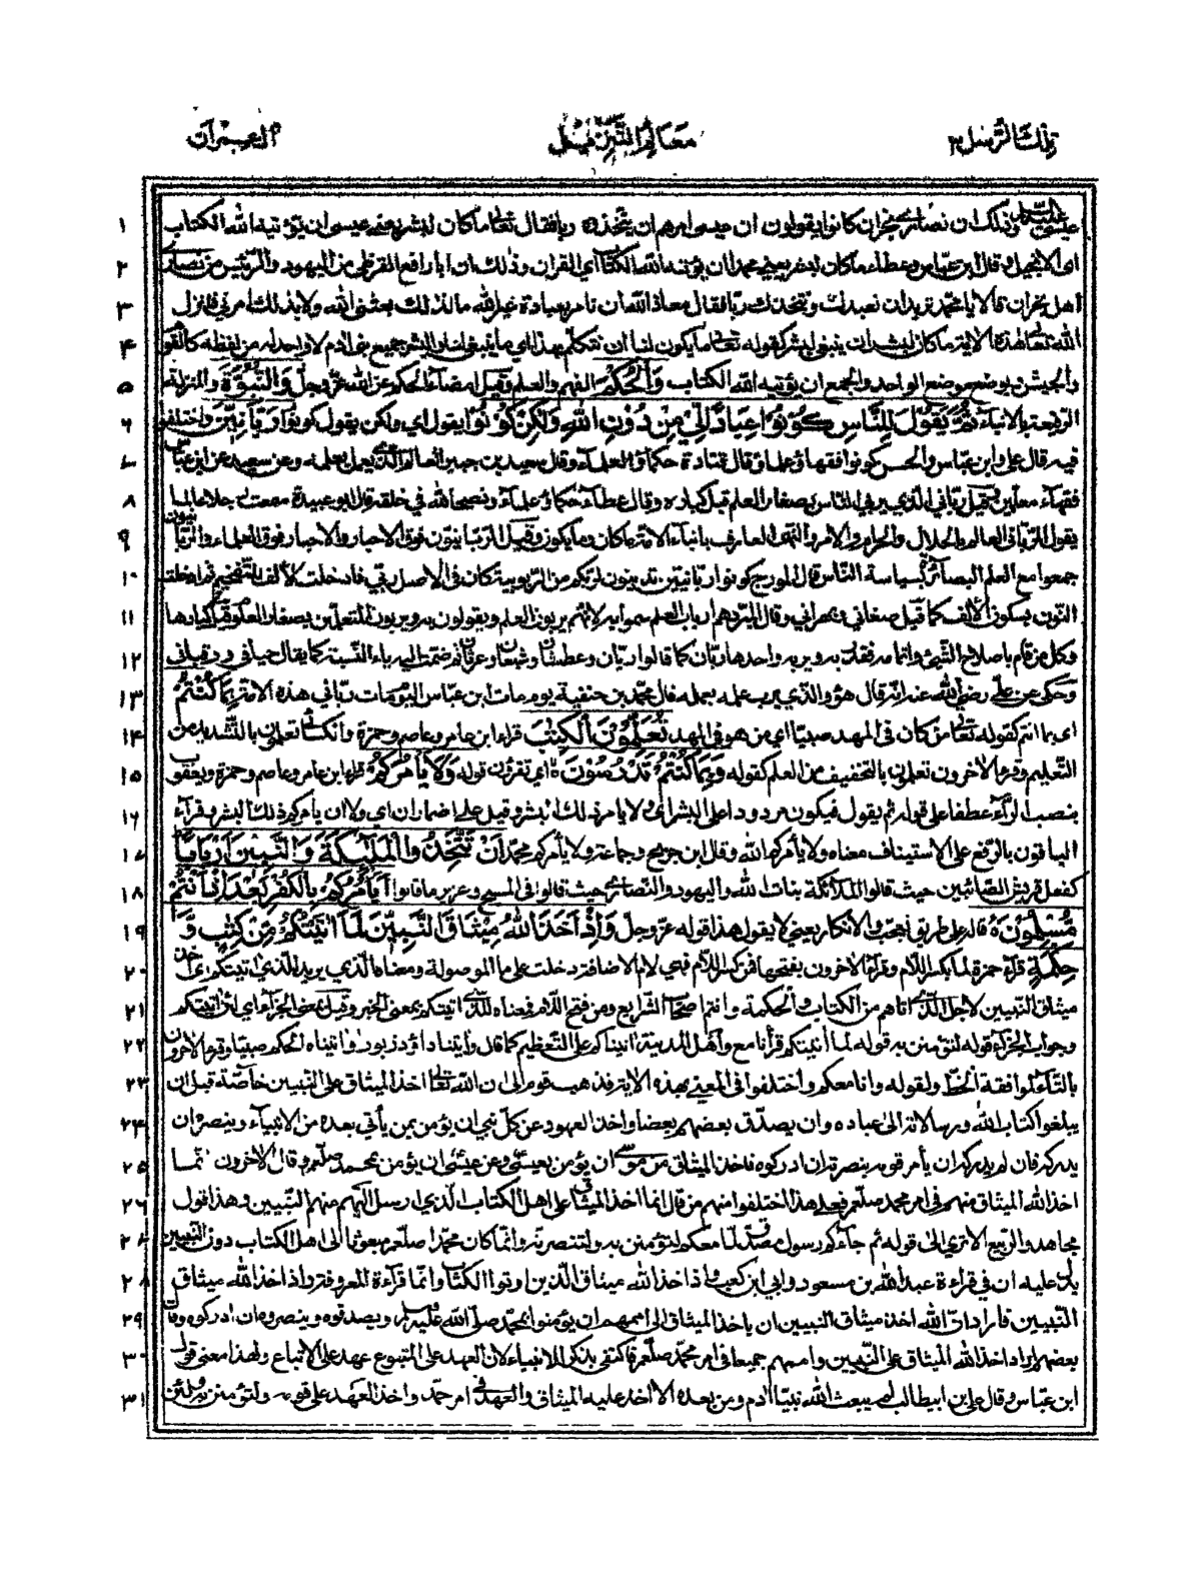 تلك الرسل ٣
معالم التنزيل
آل عمران
١ عيسى عليه السلام وذلك ان نصارى نجران كانوا يقولون ان عيسى امرهم ان يتخذوه ربا فقال تعالى ما كان لبشر يعني عيسى ان يؤتيه الله الكتاب
٢ اى الانجيل وقال ابن عباس وعطاء ما كان لبشر يعني محمدا ان يؤتيه الله الكتاب اي القران وذلك ان ابا رافع القرظي من اليهود والرئيس من نصارى
٣ اهل نجران قالا يا محمد تريد ان نعبدك ونتخذك ربا فقال معاذ الله ان نامر بعبادة غير الله ما بذلك بعثني الله ولا بذلك امرني فانزل
٤ الله تعالى هذه الاية ما كان لبشر ان ينبغي لبشر كقوله تعالى ما يكون لنا ان نتكلم بهذا اي ما ينبغي لنا والبشر جميع بني ادم لا واحد له من لفظه كالقوم
٥ والجيش يوضع موضع الواحد والجمع ان يؤتيه الله الكتاب وَالْحُكْمَ الفهم والعلم وقيل امضاء الحكم عن الله عز وجل وَالنُّبُوَّةَ والمنزلة
٦ الرفيعة بالانبياء ثُمَّ يَقُولَ لِلنَّاسِ كُوْنُوْا عِبَادًا لِّيْ مِنْ دُوْنِ اللهِ وَلٰكِنْ كُوْنُوْا يقول اي ولكن يقول كونوا رَبَّانِيِّنَ واختلفوا
٧ فيه قال علي وابن عباس والحسن كونوا فقهاء علماء وقال قتادة حكماء وعلماء وقال سعيد بن جبير العالم الذي يعمل بعلمه وعن سعيد عن ابن عباس
٨ فقهاء معلمين قيل رباني الذي يربي الناس بصغار العلم قبل كباره وقال عطاء حكماء وعلماء ونصحاء لله في خلقه قال ابو عبيدة سمعت رجلا عالما
٩ يقول الرباني العالم بالحلال والحرام والامر والنهي العارف بانباء الامة ما كان وما يكون وقيل الربانيون فوق الاحبار والاحبار فوق العلماء والربانيون
١٠ جمعوا مع العلم البصائر بسياسة الناس قال المورج كونوا ربانيين تدينون لربكم من الربوبية كان في الاصل ربي فادخلت الالف للتفخيم ثم ادخلت
١١ النون بسكون الالف كما قيل صنعاني وبهراني وقال المبرد هم ارباب العلم سموا به لانهم يربون العلم ويقولون به ويربون المتعلمين بصغار العلوم قبل كبارها
١٢ وكل من قام باصلاح الشئ واتمامه فقد ربه يربه واحدها ربان كما قالوا ريان وعطشان وشبعان وعريان ثم ضمت اليه ياء النسبة كما يقال لحياني ورقباني
١٣ وحكى عن علي رضي الله عنه انه قال هو الذي يرب علمه بعمله قال محمد بن حنفية يوم مات ابن عباس اليوم مات رباني هذه الامة بِمَا كُنْتُمْ
١٤ اى بما انتم كقوله تعالى من كان فى المهد صبيا اي من هو في المهد تُعَلِّمُوْنَ الْكِتٰبَ قراء ابن عامر وعاصم وحمزة والكسائي تعلمون بالتشديد من
١٥ التعليم وقرء الاخرون تعلمون بالتخفيف من العلم كقوله وَبِمَا كُنْتُمْ تَدْرُسُوْنَ ۙ اي تقرؤن قوله وَلَا يَأْمُرَكُمْ قراء ابن عامر وعاصم وحمزة ويعقوب
١٦ بنصب الراء عطفا على قوله ثم يقول فيكون مردودا على البشر اى ولا يامر ذلك البشر وقيل على اضمار ان اي ولا ان يامركم ذلك البشر وقراء
١٧ الباقون بالرفع على الاستيناف معناه ولا يأمركم الله وقال ابن جريج وجماعة ولا يأمركم محمد اَنْ تَتَّخِذُوا الْمَلٰٓئِكَةَ وَالنَّبِيّٖنَ اَرْبَابًا
١٨ كفعل قريش والصابئين حيث قالوا الملائكة بنات الله واليهود والنصارى حيث قالوا في المسيح وعزير ما قالوا اَيَأْمُرُكُمْ بِالْكُفْرِ بَعْدَ اِذْ اَنْتُمْ
١٩ مُّسْلِمُوْنَ ۟ قاله على طريق التعجب والانكار يعني لا يقول هذا قوله عز وجل وَاِذْ اَخَذَ اللهُ مِيْثَاقَ النَّبِيّٖنَ لَمَا اٰتَيْتُكُمْ مِّنْ كِتٰبٍ وَّ
٢٠ حِكْمَةٍ قراء حمزة لما بكسر اللام وقراء الاخرون بفتحها فمن كسر اللام فهي لام الاضافة دخلت على ما الموصولة ومعناه الذي يريد للذي اتيتكم اى اخذ
٢١ ميثاق النبيين لاجل الذى اتاهم من الكتاب والحكمة وانهم اصحاب الشرايع ومن فتح اللام فمعناه للذى اتيتكم بمعنى الخبر وقيل بمعنى الجزاء اي لئن اتيتكم
٢٢ وجواب الجزاء قوله لتؤمنن به قوله لما اتيتكم قرأ نافع واهل المدينة اتيناكم على التعظيم كما قال واتينا داؤد زبورا واتيناه الحكم صبيا وقرء الاخرون
٢٣ بالتاء لموافقة الخط ولقوله وانا معكم واختلفوا فى المعنى بهذه الاية فذهب قوم الى ان الله تعالى اخذ الميثاق على النبيين خاصة قبل ان
٢٤ يبلغوا كتاب الله ورسالاته الى عباده وان يصدق بعضهم بعضا واخذ العهود عن كل نبي ان يؤمن بمن يأتي بعده من الانبياء وينصره ان
٢٥ يدركه فان لم يدركه ان يأمر قومه بنصرته ان ادركوه فاخذ الميثاق من موسى ان يؤمن بعيسى وعن عيسى ان يؤمن بمحمد صلعم وقال الاخرون انما
٢٦ اخذ الله الميثاق منهم في امر محمد صلعم فعلى هذا اختلفوا منهم من قال انما اخذ الميثاق على اهل الكتاب الذي ارسل اليهم منهم النبيين وهذا قول
٢٧ مجاهد والربيع الا ترى الى قوله ثم جاءكم رسول مصدق لما معكم لتؤمنن به ولتنصرنه وانما كان محمد صلعم مبعوثا الى اهل الكتاب دون النبيين
٢٨ يدل عليه ان في قراءة عبد الله بن مسعود وابي ابن كعب واذ اخذ الله ميثاق الذين اوتوا الكتاب وانما قراءة المعروفة واذ اخذ الله ميثاق
٢٩ النبيين فاراد ان الله اخذ ميثاق النبيين ان ياخذ الميثاق الى اممهم ان يؤمنوا بمحمد صلى الله عليه وسلم ويصدقوه وينصروه ان ادركوه وقال
٣٠ بعضهم اراد اخذ الله الميثاق على النبيين واممهم جميعا في امر محمد صلعم فاكتفى بذكر الانبياء لان العهد على المتبوع عهد على الاتباع وهذا معنى قول
٣١ ابن عباس وقال علي بن ابيطالب لم يبعث الله نبيا ادم ومن بعده الا اخذ عليه الميثاق والعهد في امر محمد واخذ العهد على قومه ولتؤمنن به ولئن